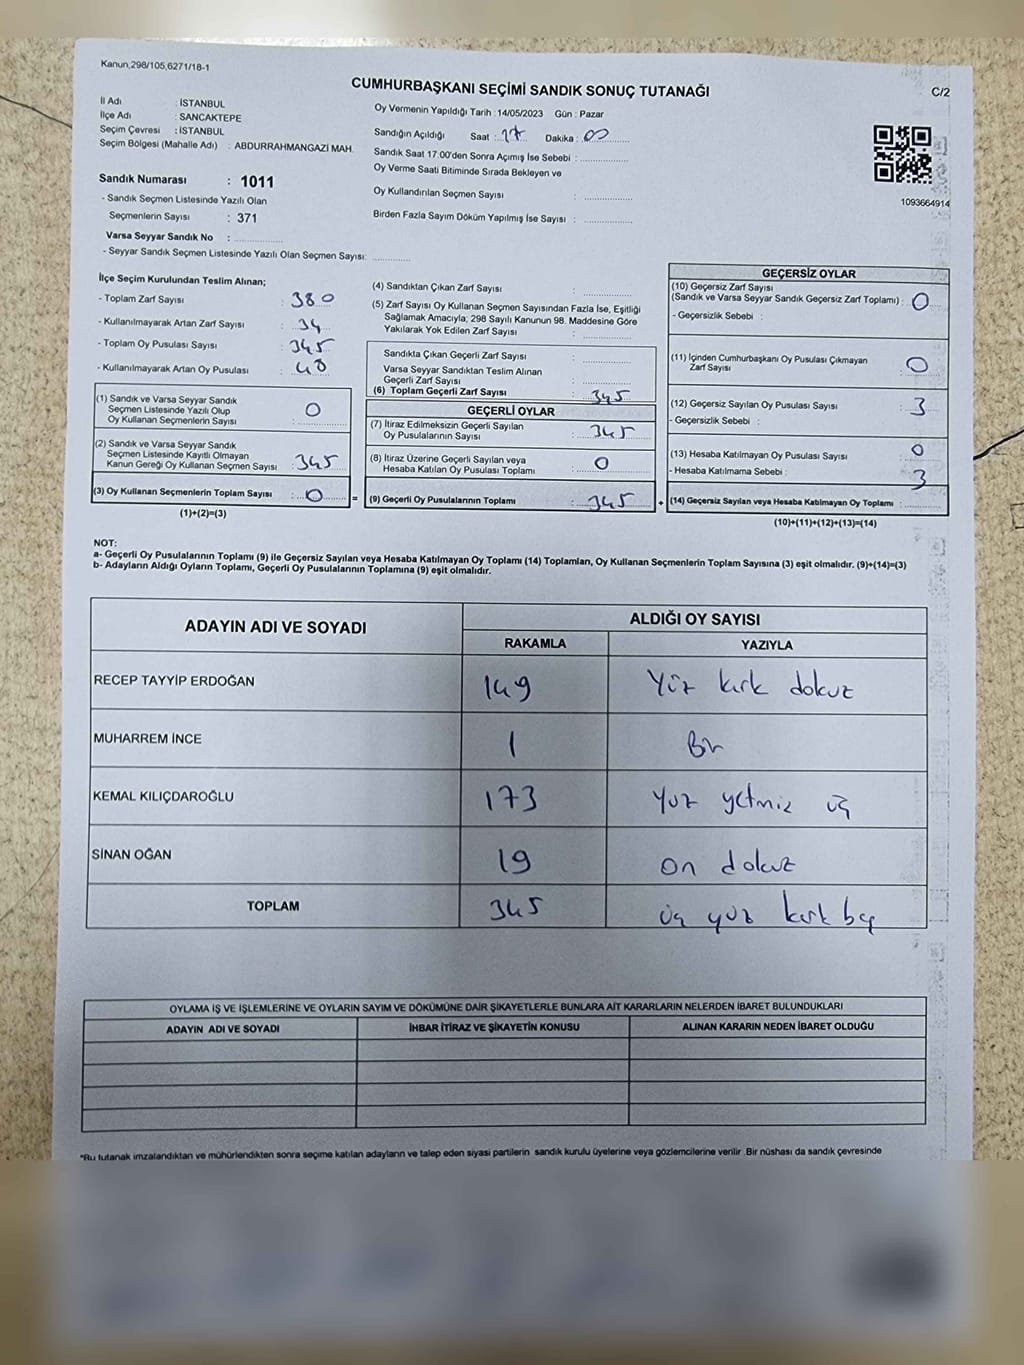 Kanun,298/105,6271/18-1
CUMHURBAŞKANI SEÇİMİ SANDIK SONUÇ TUTANAĞI
C/2
İl Adı : İSTANBUL
İlçe Adı : SANCAKTEPE
Seçim Çevresi : İSTANBUL
Seçim Bölgesi (Mahalle Adı) : ABDURRAHMANGAZİ MAH.
Sandık Numarası : 1011
- Sandık Seçmen Listesinde Yazılı Olan
Seçmenlerin Sayısı : 371
Varsa Seyyar Sandık No :
- Seyyar Sandık Seçmen Listesinde Yazılı Olan Seçmen Sayısı:
Oy Vermenin Yapıldığı Tarih :14/05/2023 Gün : Pazar
Sandığın Açıldığı Saat : 17 Dakika : 00
Sandık Saat 17:00'den Sonra Açımış İse Sebebi :
Oy Verme Saati Bitiminde Sırada Bekleyen ve
Oy Kullandırılan Seçmen Sayısı :
Birden Fazla Sayım Döküm Yapılmış İse Sayısı :
1093664914
İlçe Seçim Kurulundan Teslim Alınan;
- Toplam Zarf Sayısı : 380
- Kullanılmayarak Artan Zarf Sayısı : 34
- Toplam Oy Pusulası Sayısı : 345
- Kullanılmayarak Artan Oy Pusulası : 48
(1) Sandık ve Varsa Seyyar Sandık
Seçmen Listesinde Yazılı Olup
Oy Kullanan Seçmenlerin Sayısı : 0
(2) Sandık ve Varsa Seyyar Sandık
Seçmen Listesinde Kayıtlı Olmayan
Kanun Gereği Oy Kullanan Seçmen Sayısı : 345
(3) Oy Kullanan Seçmenlerin Toplam Sayısı : 0 =
(1)+(2)=(3)
(4) Sandıktan Çıkan Zarf Sayısı :
(5) Zarf Sayısı Oy Kullanan Seçmen Sayısından Fazla İse, Eşitliği
Sağlamak Amacıyla; 298 Sayılı Kanunun 98. Maddesine Göre
Yakılarak Yok Edilen Zarf Sayısı :
Sandıkta Çıkan Geçerli Zarf Sayısı :
Varsa Seyyar Sandıktan Teslim Alınan
Geçerli Zarf Sayısı :
(6) Toplam Geçerli Zarf Sayısı : 345
GEÇERLİ OYLAR
(7) İtiraz Edilmeksizin Geçerli Sayılan
Oy Pusulalarının Sayısı : 345
(8) İtiraz Üzerine Geçerli Sayılan veya
Hesaba Katılan Oy Pusulası Toplamı : 0
(9) Geçerli Oy Pusulalarının Toplamı : 345 +
GEÇERSİZ OYLAR
(10) Geçersiz Zarf Sayısı
(Sandık ve Varsa Seyyar Sandık Geçersiz Zarf Toplamı) : 0
- Geçersizlik Sebebi :
(11) İçinden Cumhurbaşkanı Oy Pusulası Çıkmayan
Zarf Sayısı : 0
(12) Geçersiz Sayılan Oy Pusulası Sayısı : 3
- Geçersizlik Sebebi :
(13) Hesaba Katılmayan Oy Pusulası Sayısı : 0
- Hesaba Katılmama Sebebi : 3
(14) Geçersiz Sayılan veya Hesaba Katılmayan Oy Toplamı :
(10)+(11)+(12)+(13)=(14)
NOT:
a- Geçerli Oy Pusulalarının Toplamı (9) ile Geçersiz Sayılan veya Hesaba Katılmayan Oy Toplamı (14) Toplamları, Oy Kullanan Seçmenlerin Toplam Sayısına (3) eşit olmalıdır. (9)+(14)=(3)
b- Adayların Aldığı Oyların Toplamı, Geçerli Oy Pusulalarının Toplamına (9) eşit olmalıdır.
ADAYIN ADI VE SOYADI ALDIĞI OY SAYISI
RAKAMLA YAZIYLA
RECEP TAYYİP ERDOĞAN 149 Yüz kırk dokuz
MUHARREM İNCE 1 Bir
KEMAL KILIÇDAROĞLU 173 Yüz yetmiz üç
SİNAN OĞAN 19 on dokuz
TOPLAM 345 üç yüz kırk beş
OYLAMA İŞ VE İŞLEMLERİNE VE OYLARIN SAYIM VE DÖKÜMÜNE DAİR ŞİKAYETLERLE BUNLARA AİT KARARLARIN NELERDEN İBARET BULUNDUKLARI
ADAYIN ADI VE SOYADI İHBAR İTİRAZ VE ŞİKAYETİN KONUSU ALINAN KARARIN NEDEN İBARET OLDUĞU
*Bu tutanak imzalandıktan ve mühürlendikten sonra seçime katılan adayların ve talep eden siyasi partilerin sandık kurulu üyelerine veya gözlemcilerine verilir .Bir nüshası da sandık çevresinde